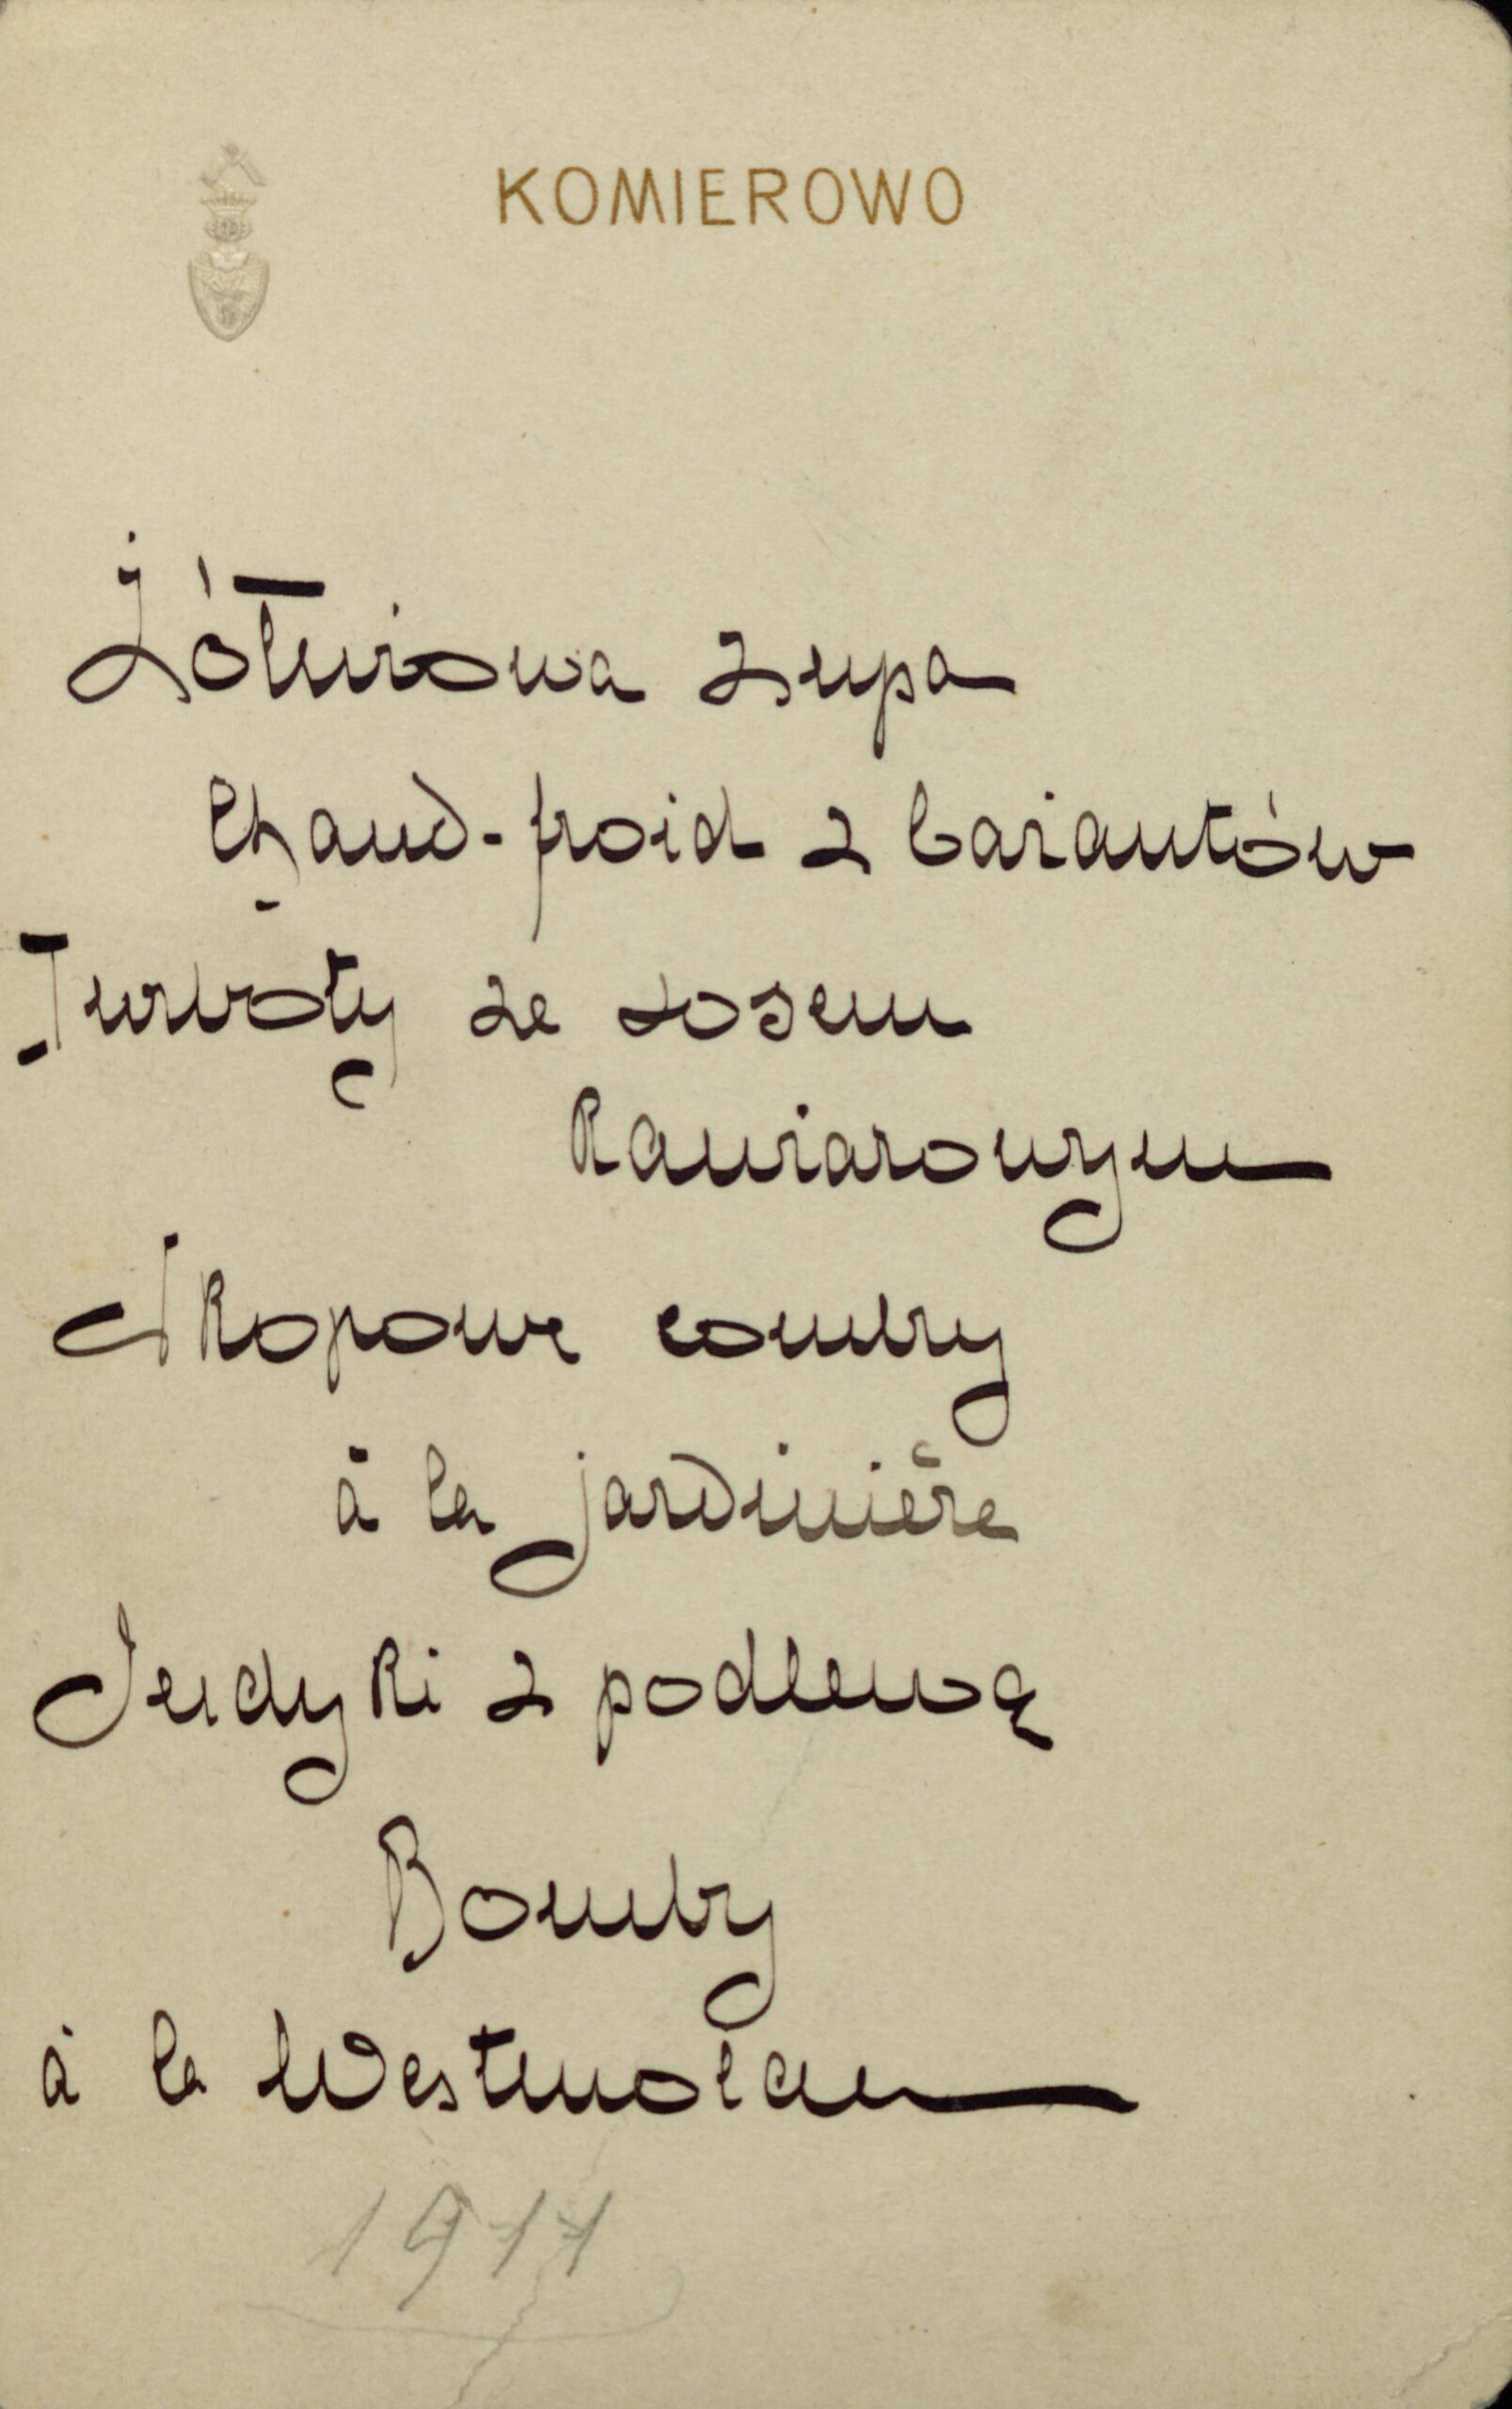 KOMIEROWO
Żółwiowa zupa
Chaud-froid z bażantów
Turboty ze sosem
Kawiarowym
Skopowe combry
à la jardinière
Jendyki z podlewą
Bomby
à la
1911